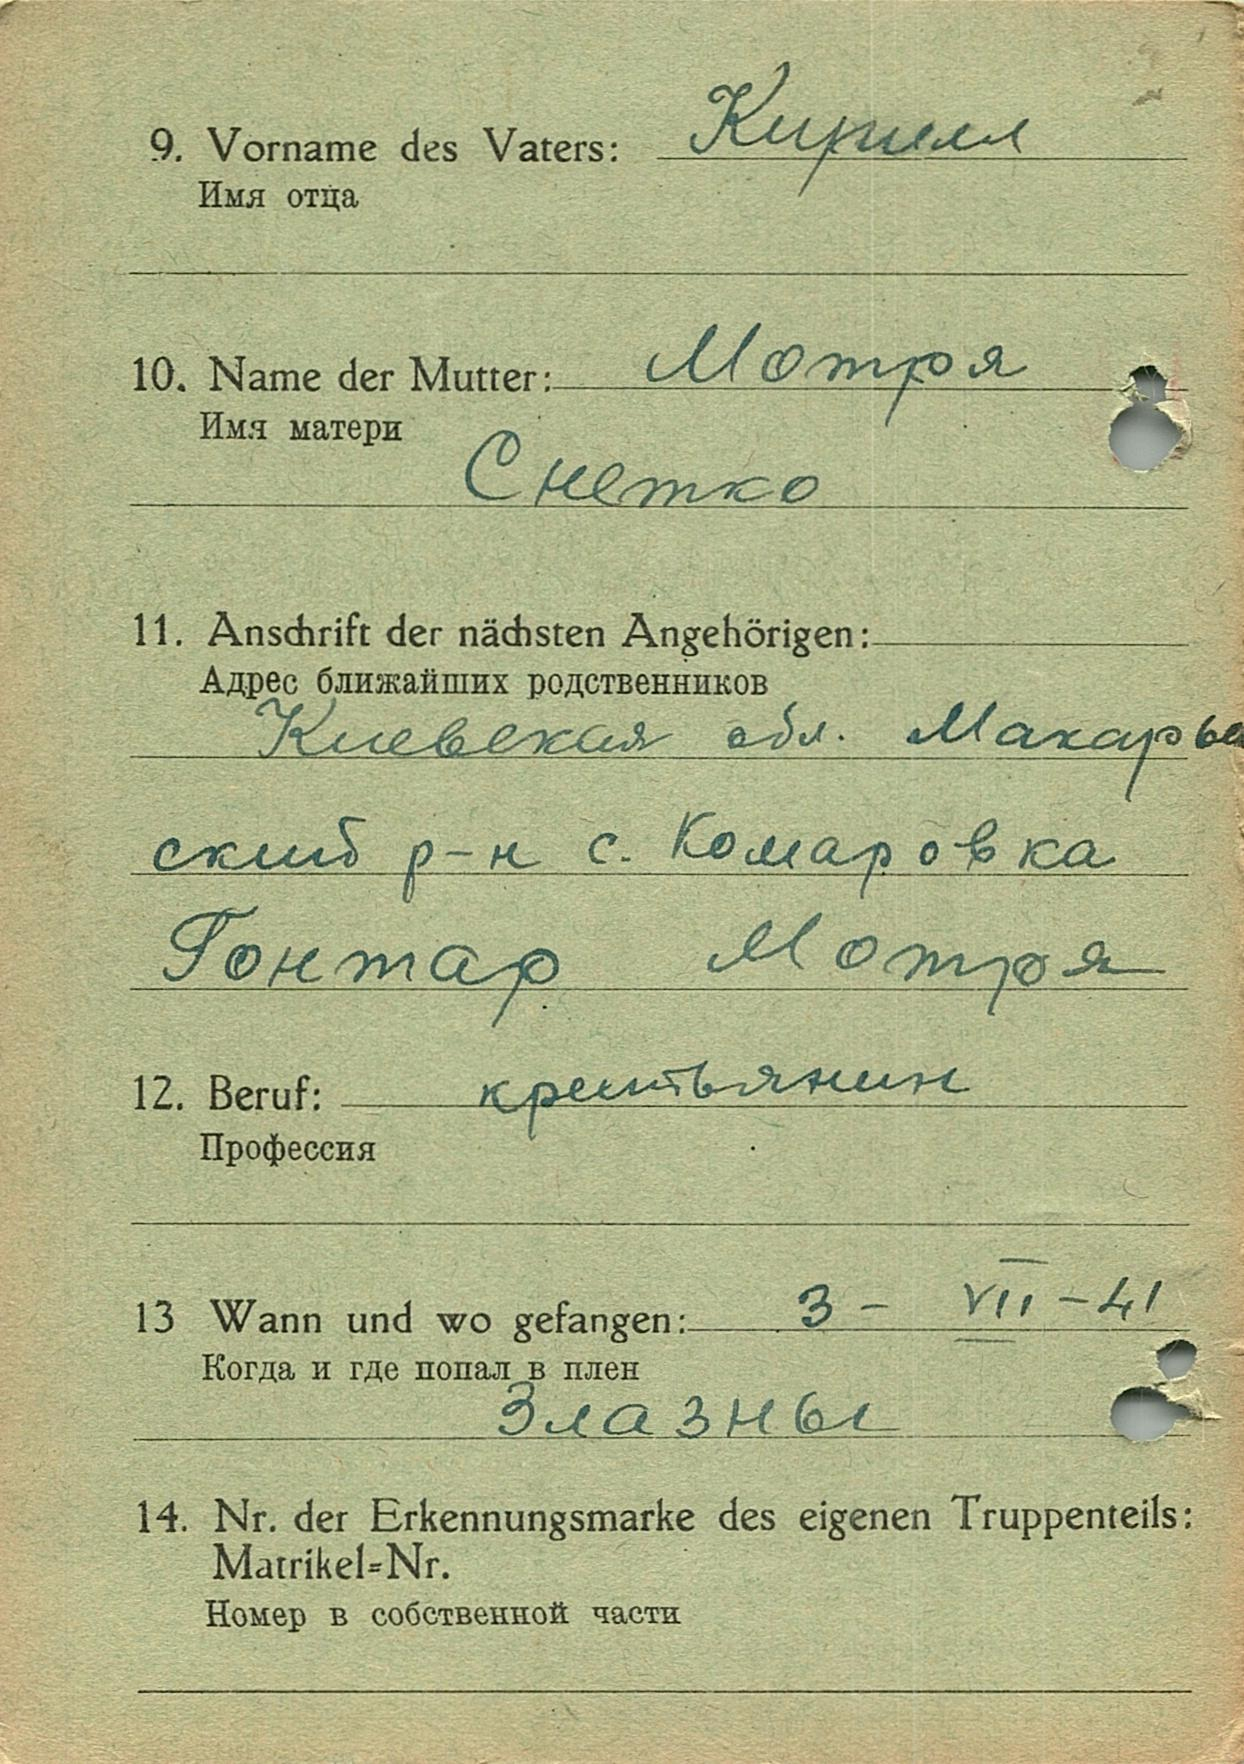 9. Vorname des Vaters: Кирилл
Имя отца
10. Name der Mutter: Мотря
Имя матери
Снетко
11. Anschrift der nächsten Angehörigen:
Адрес ближайших родственников
Киевская обл. Макарьев
ский р-н с. Комаровка
Гонтар Мотря
12. Beruf: крестьянин
Профессия
13 Wann und wo gefangen: 3 - VII - 41
Когда и где попал в плен
Злазны
14. Nr. der Erkennungsmarke des eigenen Truppenteils:
Matrikel=Nr.
Номер в собственной части